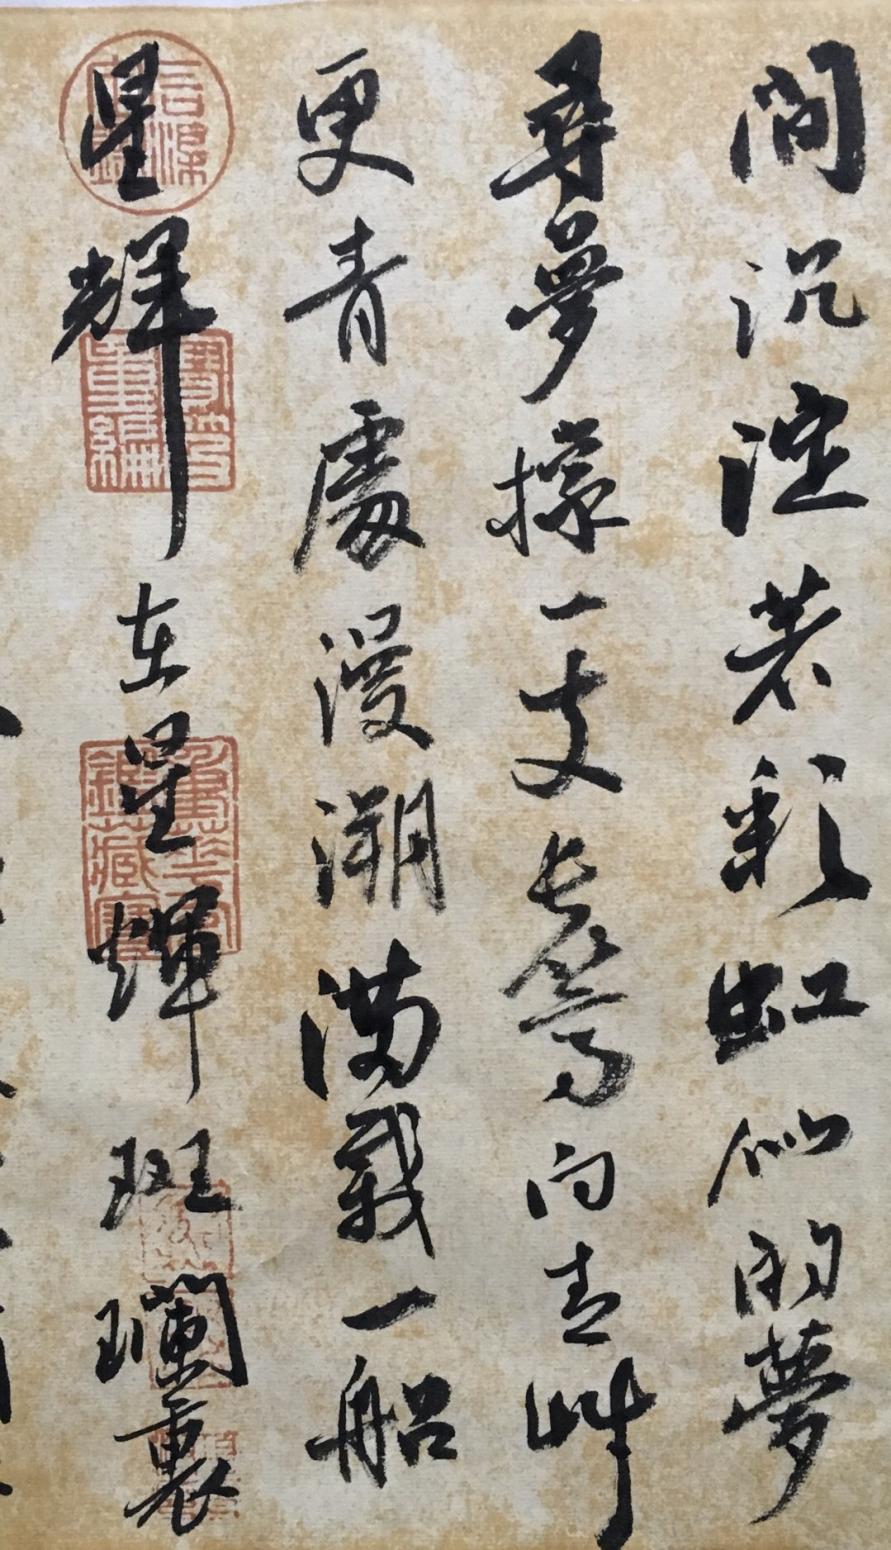 間沉淀着彩虹似的夢
尋夢撑一支長篙向青艸
更青處漫溯滿載一船
星輝在星輝斑斕裏